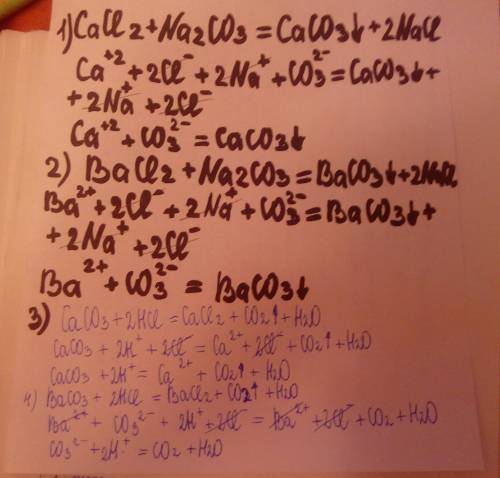 1) CaCl2 + Na2CO3 = CaCO3↓ + 2NaCl
Ca⁺² + 2Cl⁻ + 2Na⁺ + CO3²⁻ = CaCO3↓ +
+ 2Na⁺ + 2Cl⁻
Ca⁺² + CO3²⁻ = CaCO3↓
2) BaCl2 + Na2CO3 = BaCO3↓ + 2NaCl
Ba²⁺ + 2Cl⁻ + 2Na⁺ + CO3²⁻ = BaCO3↓ +
+ 2Na⁺ + 2Cl⁻
Ba²⁺ + CO3²⁻ = BaCO3↓
3) CaCO3 + 2HCl = CaCl2 + CO2↑ + H2O
CaCO3 + 2H⁺ + 2Cl⁻ = Ca²⁺ + 2Cl⁻ + CO2↑ + H2O
CaCO3 + 2H⁺ = Ca²⁺ + CO2↑ + H2O
4) BaCO3 + 2HCl = BaCl2 + CO2↑ + H2O
Ba²⁺ + CO3²⁻ + 2H⁺ + 2Cl⁻ = Ba²⁺ + 2Cl⁻ + CO2 + H2O
CO3²⁻ + 2H⁺ = CO2 + H2O